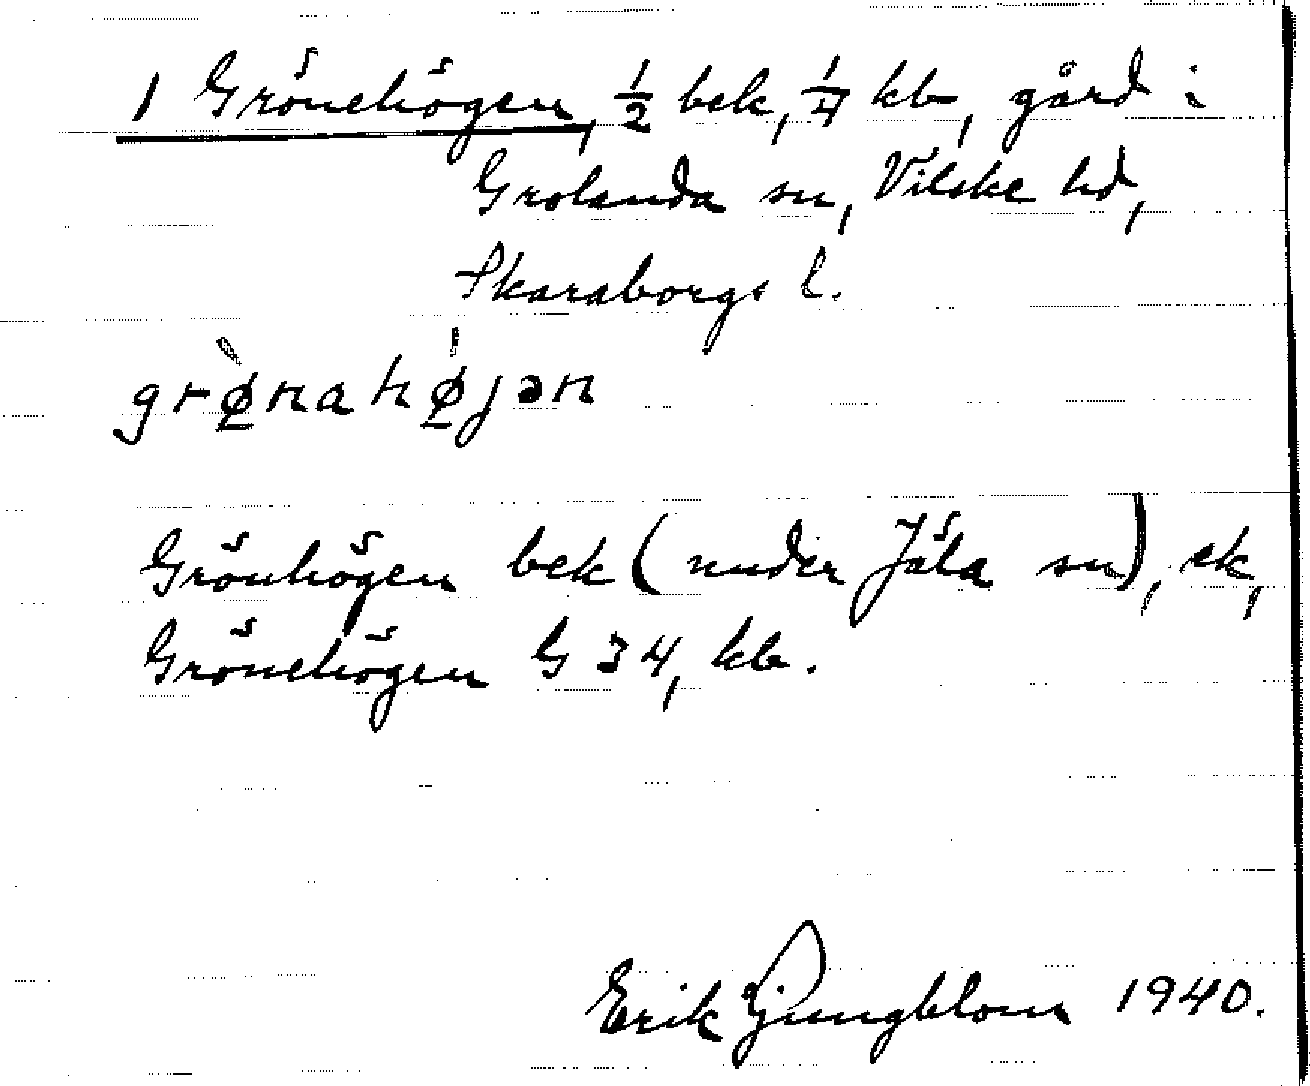 1 Grönehögen, ½ bek, ¼ kb, gård i
Grolanda sn, Vilske hd,
Skaraborgs l.
grø̠̀nahǿ̠jən
Grönhögen bek (under Jäla sn), ek,
Grönehögen G 34, kb.
Erik Ljungblom 1940.